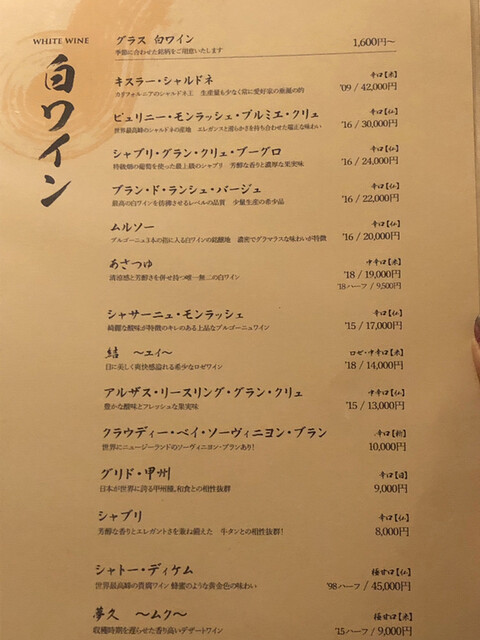 WHITE WINE
白ワイン
グラス 白ワイン 1,600円～
季節に合わせた銘柄をご用意いたします
キスラー・シャルドネ 辛口【米】
カリフォルニアのシャルドネ王 生産量も少なく常に愛好家の垂涎の的 '09 / 42,000円
ピュリニー・モンラッシェ・プルミエ・クリュ 辛口【仏】
世界最高峰のシャルドネの産地 エレガンスと滑らかさを持ち合わせた端正な味わい '16 / 30,000円
シャブリ・グラン・クリュ・ブーグロ 辛口【仏】
特級畑の葡萄を使った最上級のシャブリ 芳醇な香りと濃厚な果実味 '16 / 24,000円
ブラン・ド・ランシュ・バージュ 辛口【仏】
最高の白ワインを彷彿させるレベルの品質 少量生産の希少品 '16 / 22,000円
ムルソー 辛口【仏】
ブルゴーニュ3本の指に入る白ワインの銘醸地 濃密でグラマラスな味わいが特徴 '16 / 20,000円
あさつゆ 中辛口【米】
清涼感と芳醇さを併せ持つ唯一無二の白ワイン '18 / 19,000円
'18ハーフ / 9,500円
シャサーニュ・モンラッシェ 辛口【仏】
綺麗な酸味が特徴のキレのある上品なブルゴーニュワイン '15 / 17,000円
結 ～ユイ～ ロゼ・中辛口【米】
目に美しく爽快感溢れる希少なロゼワイン '18 / 14,000円
アルザス・リースリング・グラン・クリュ 中辛口【仏】
豊かな酸味とフレッシュな果実味 '15 / 13,000円
クラウディー・ベイ・ソーヴィニヨン・ブラン 辛口【新】
世界にニュージーランドのソーヴィニヨン・ブランあり! 10,000円
グリド・甲州 辛口【日】
日本が世界に誇る甲州種。和食との相性抜群 9,000円
シャブリ 辛口【仏】
芳醇な香りとエレガントさを兼ね備えた 牛タンとの相性抜群! 8,000円
シャトー・ディケム 極甘口【仏】
世界最高峰の貴腐ワイン 蜂蜜のような黄金色の味わい '98ハーフ / 45,000円
夢久 ～ムク～ 極甘口【米】
収穫時期を遅らせた香り高いデザートワイン '15ハーフ / 9,000円